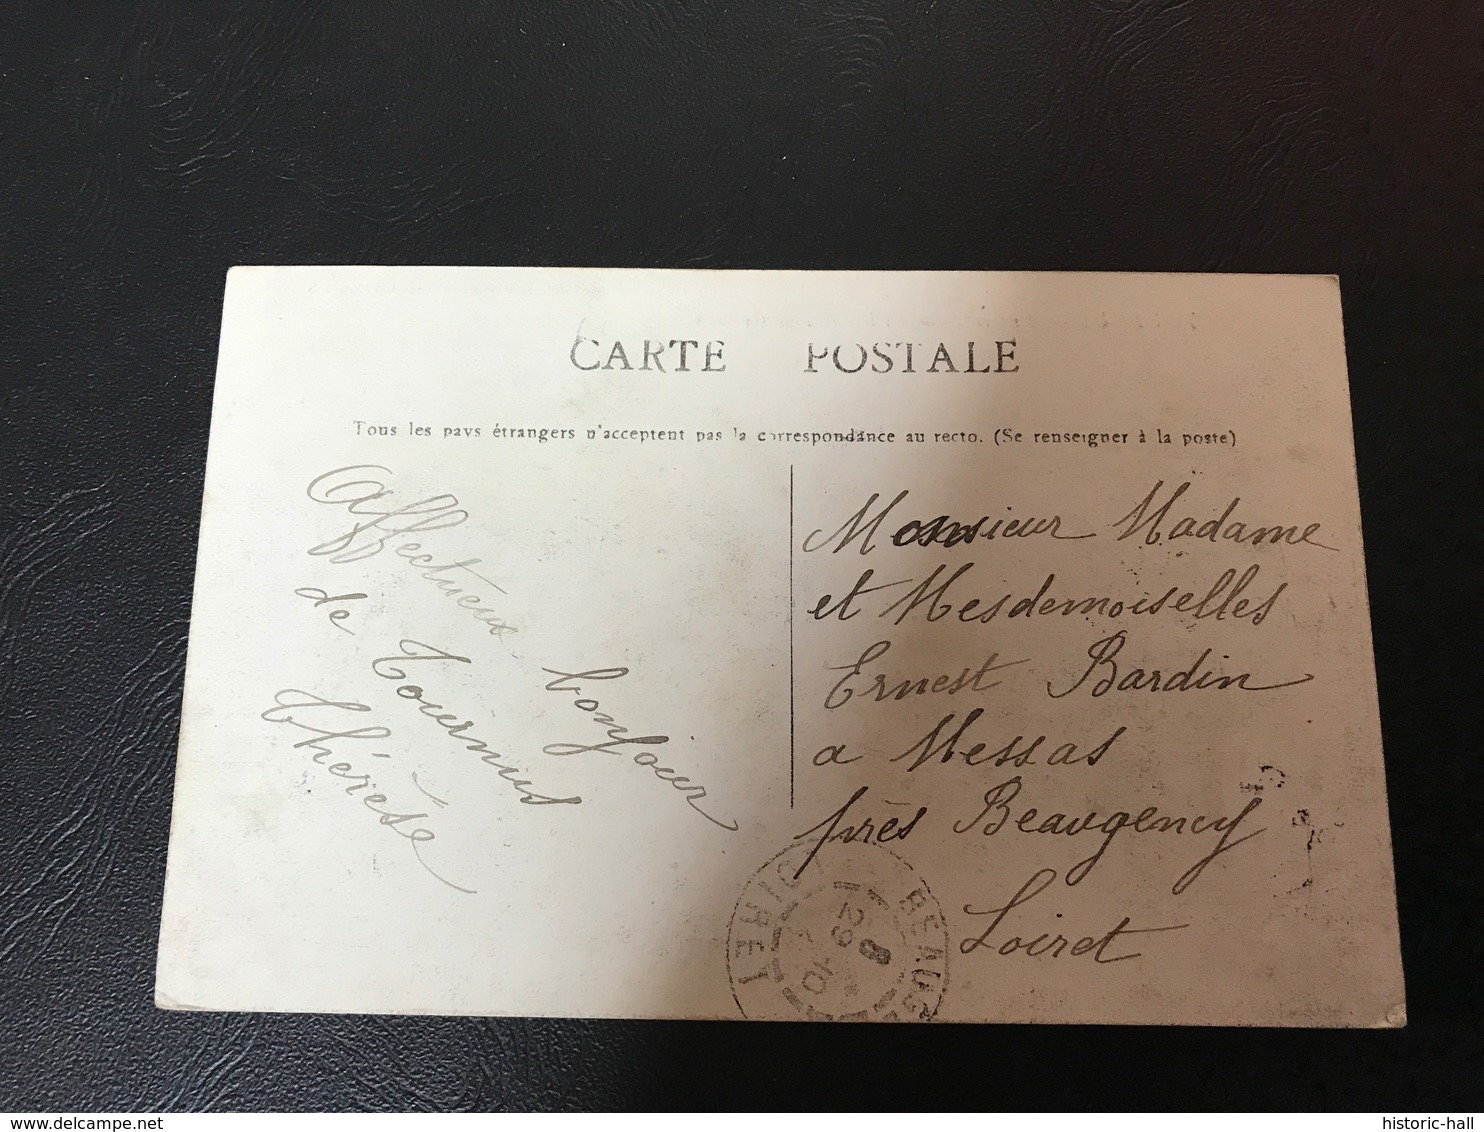 CARTE POSTALE
Tous les pays étrangers n'acceptent pas la correspondance au recto. (Se renseigner à la poste)
Affectueux bonjour
de Tournus
Thérèse
Monsieur Madame
et Mesdemoiselles
Ernest Bardin
a Messas
près Beaugency
Loiret
BEAUG
LOIRET
29
10
© delcampe.net
historic-hall